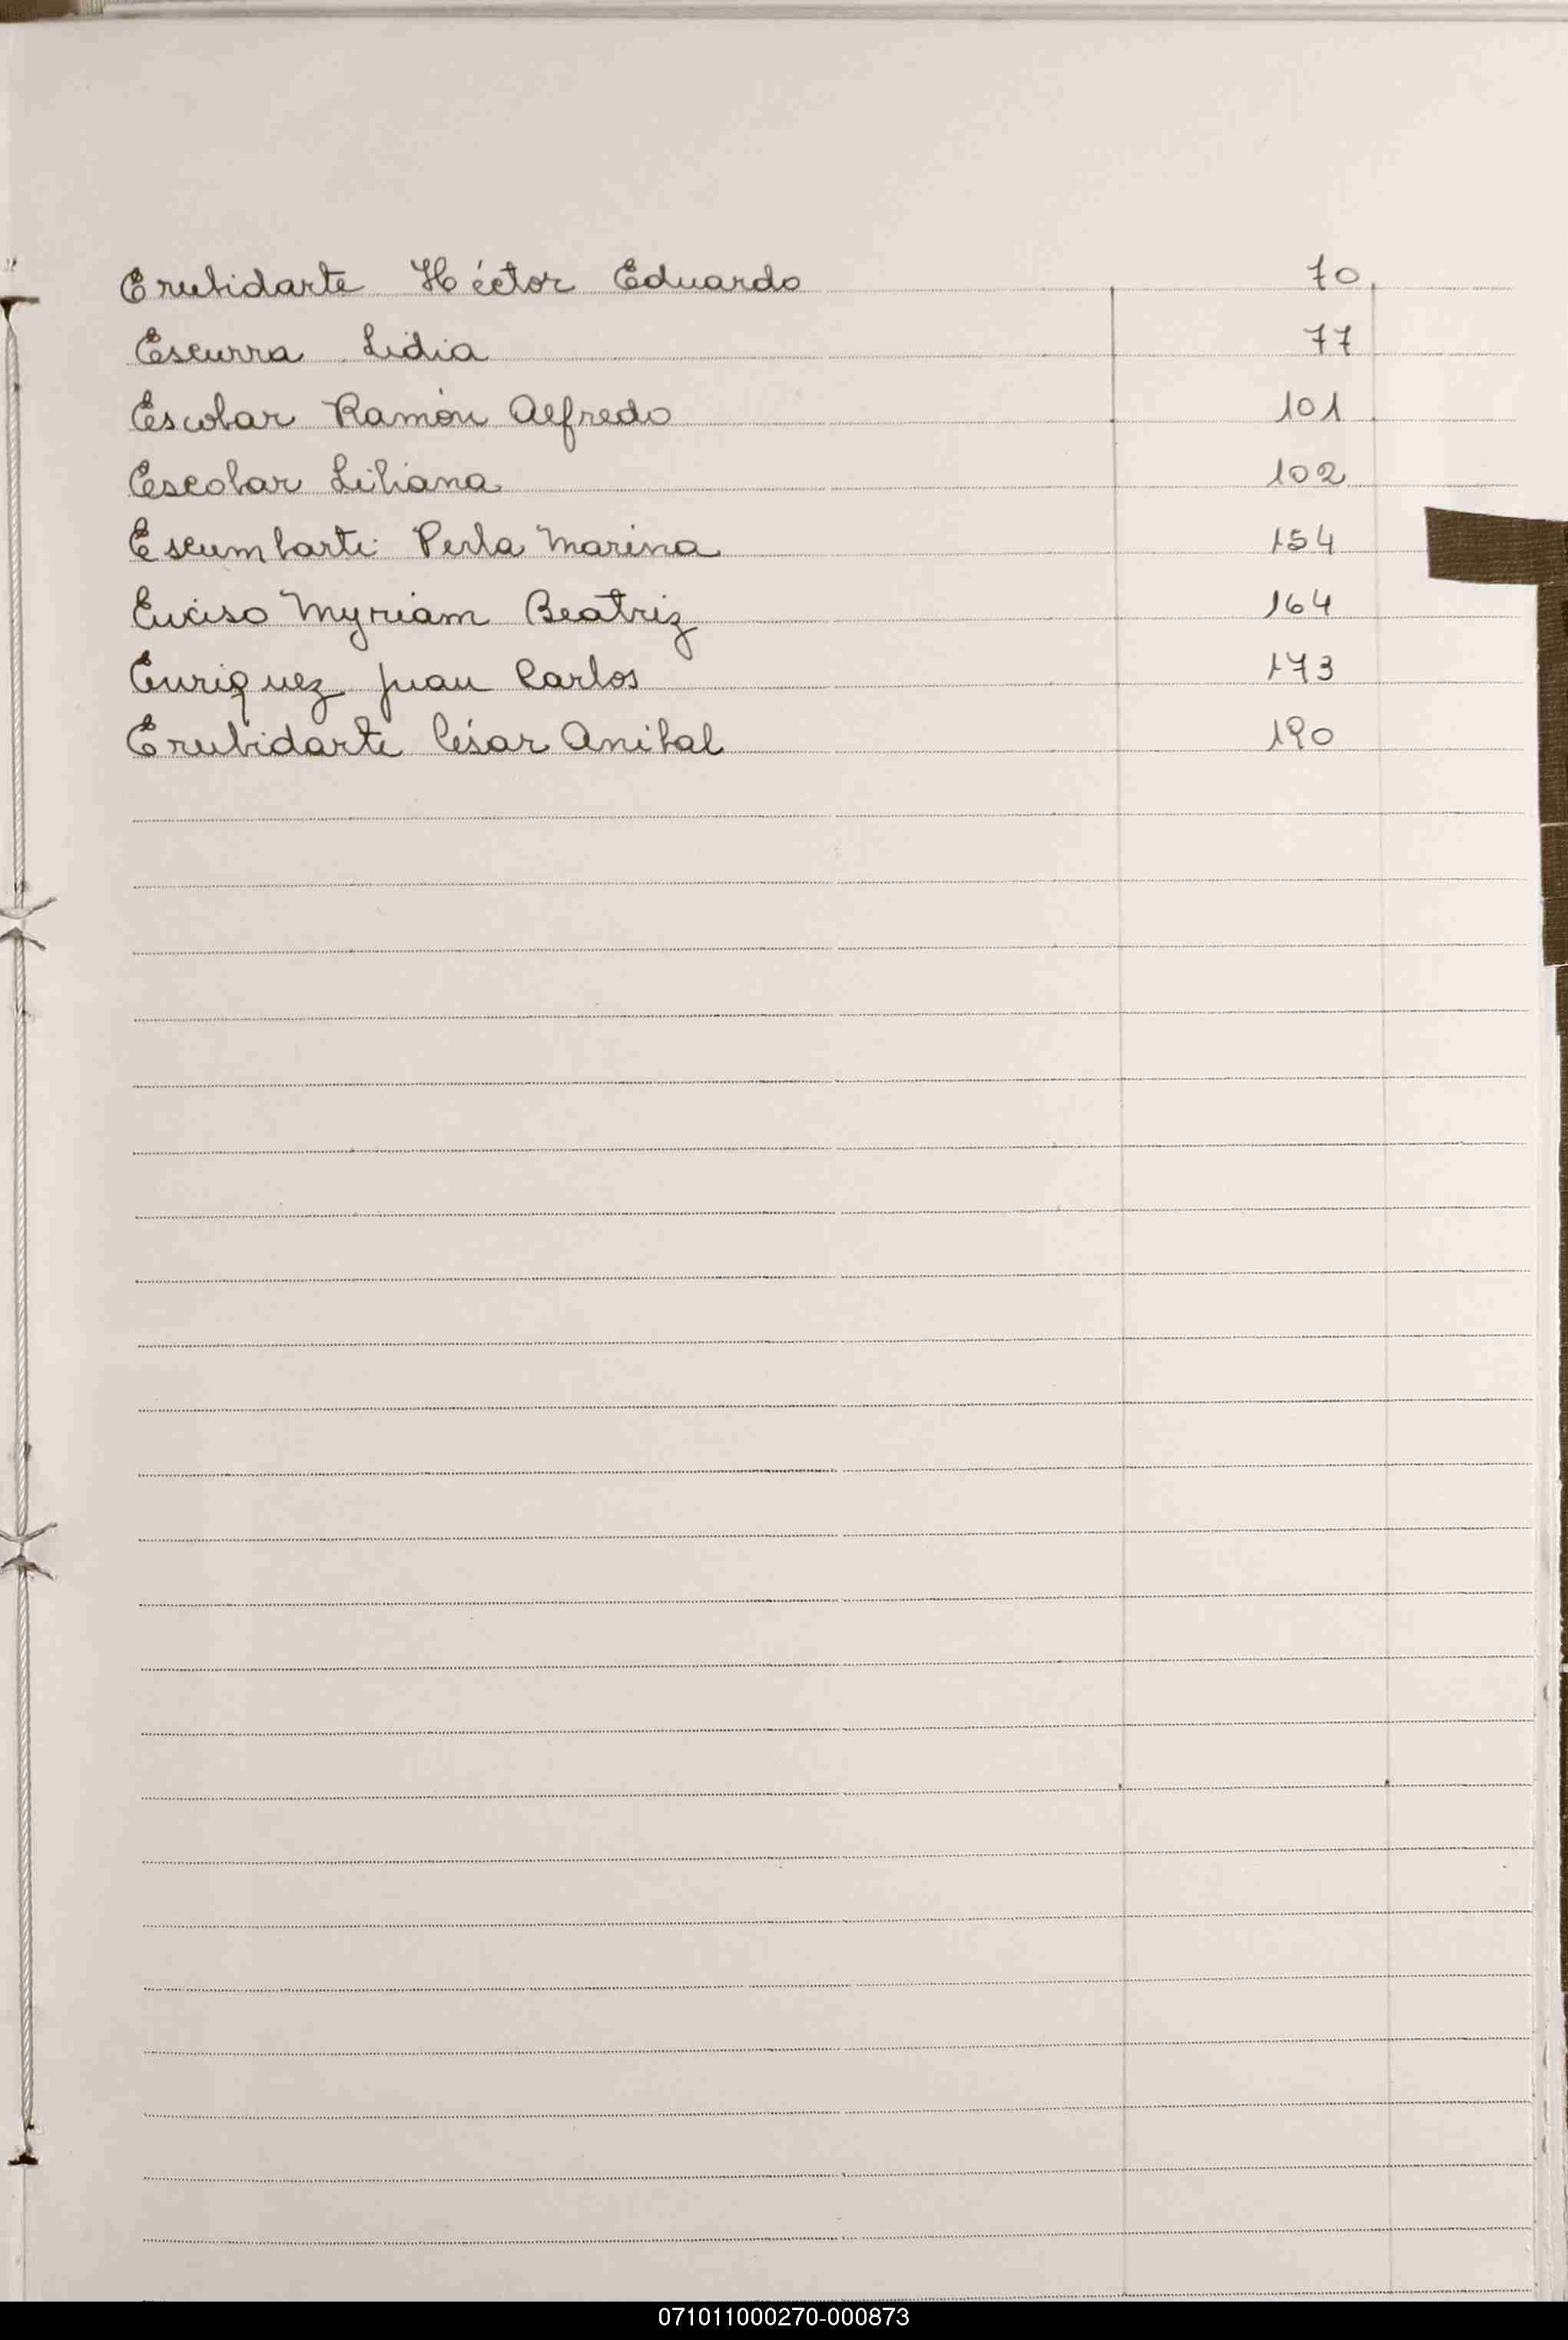 Erubidarte Héctor Eduardo 70
Escurra Lidia 77
Escobar Ramón Alfredo 101
Escobar Liliana 102
Escumbarti Perla Marina 154
Enciso Myriam Beatriz 164
Enriquez Juan Carlos 173
Erubidarte César Anibal 190
071011000270-000873